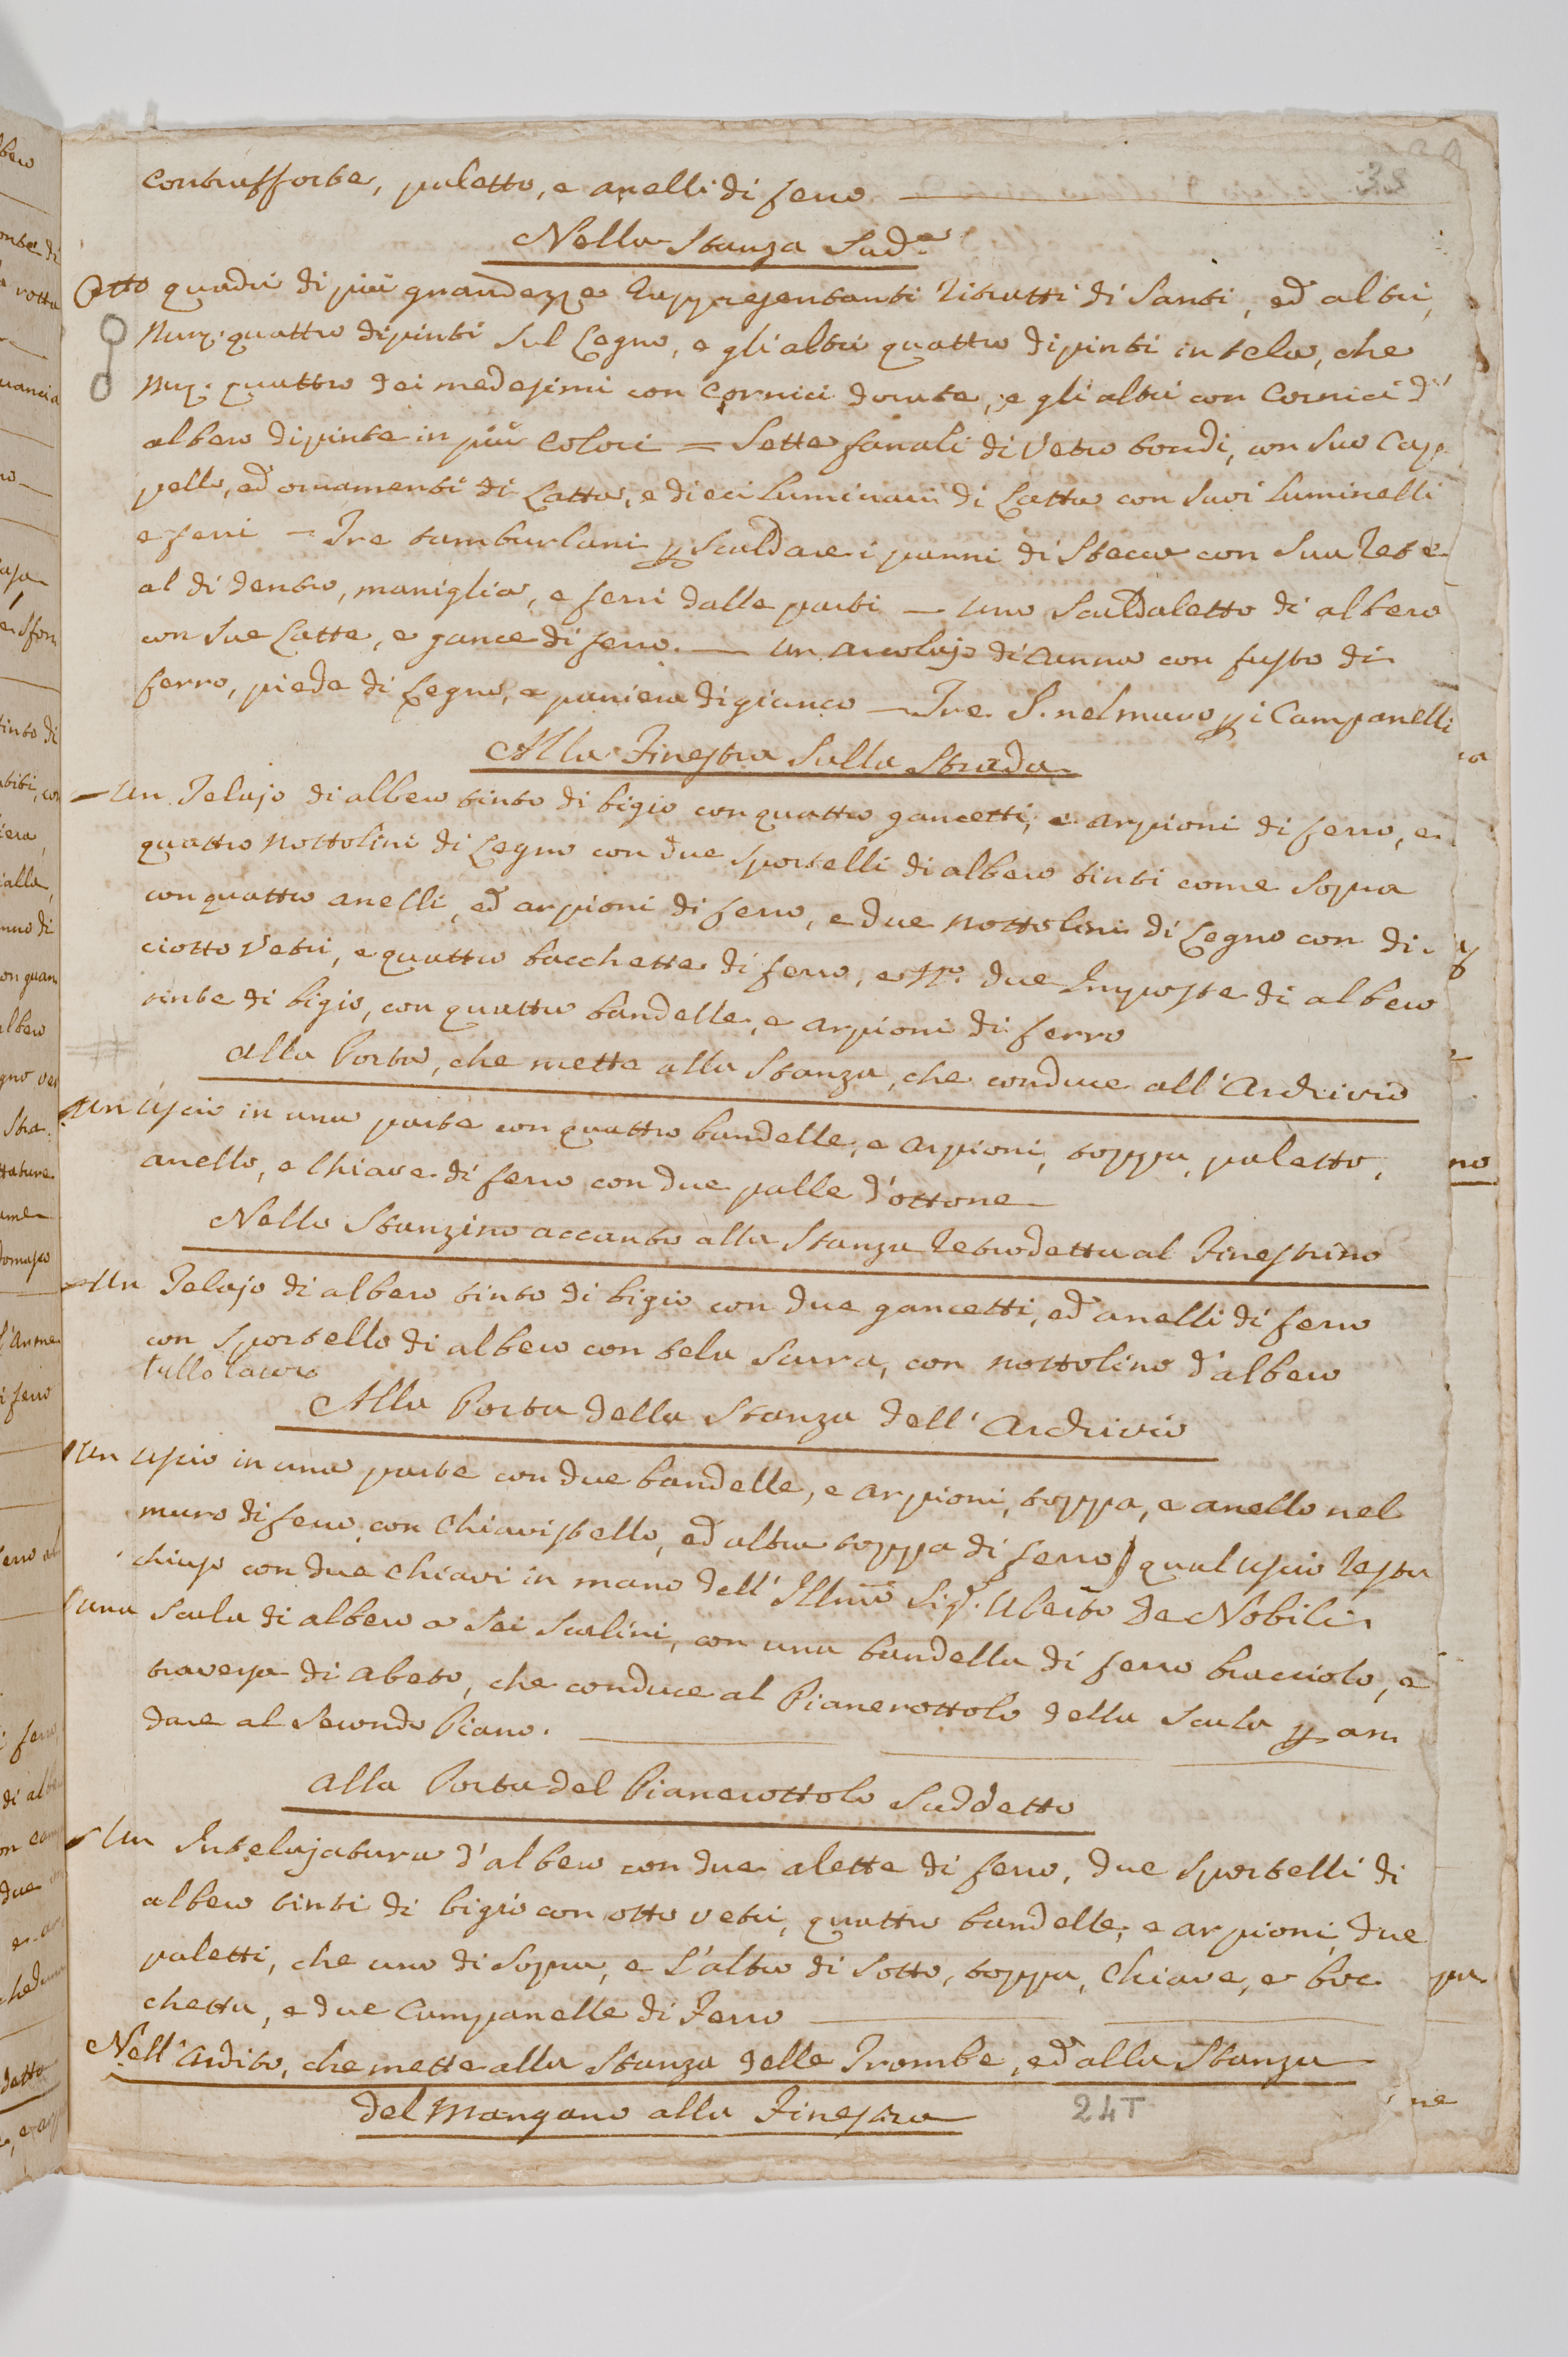 35
contrafforte, paletto, e anelli di ferro
Nella Stanza Sud.a
Otto quadri di più grandezze rappresentanti ritratti di Santi, ed altri,
Num. quattro dipinti sul Legno, e gli altri quattro dipinti in tela, che
Num. quattro dei medesimi con Cornici dorate, e gli altri con Cornici d'
albero dipinte in più Colori = Sette fanali di Vetro tondi, con suo Cap
pello, ed ornamenti di Latta, e dieci Luminari di Latta con suoi Luminelli
e ferri - Tre tamburlani p scaldare i panni di Stecca con sua rete
al di dentro, maniglia, e ferri dalle parti - Uno Scaldaletto di albero
con sue Latte, e gance di ferro. - Un arcolajo di Canna con fusto di
ferro, piede di Legno, e paniera di giunco - Tre S. nel muro p i Campanelli
Alla Finestra sulla Strada
Un Telajo di albero tinto di bigio con quattro gancetti, e arpioni di ferro, e
quattro nottolini di Legno con due sportelli di albero tinti come sopra
con quattro anelli, ed arpioni di ferro, e due nottolini di Legno con di-
ciotto Vetri, e quattro bacchette di ferro, e due Imposte di albero
tinte di bigio, con quattro bandelle, e arpioni di ferro
Alla Porta, che mette alla Stanza, che conduce all'Archivio
Un Uscio in una parte con quattro bandelle, e arpioni, toppa, paletto,
anello, e Chiave di ferro con due palle d'ottone
Nello Stanzino accanto alla Stanza retrodetta al Finestrino
Un Telajo di albero tinto di bigio con due gancetti, ed anelli di ferro
con sportello di albero con tela scura, con nottolino d'albero
Alla Porta della Stanza dell'Archivio
Un Uscio in una parte con due bandelle, e arpioni, toppa, e anello nel
muro di ferro, con Chiavistello, ed altra toppa di ferro, qual Uscio resta
chiuso con due Chiavi in mano dell'Illmo Sig.r Uberto De Nobili.
Una Scala di albero a Sei Scalini, con una bandella di ferro bracciolo, e
traversa di abeto, che conduce al Pianerottolo della Scala p an
dare al Secondo Piano.
Alla Porta del Pianerottolo Suddetto
Un Intelajatura d'albero con due alette di ferro, due sportelli di
albero tinti di bigio con otto vetri, quattro bandelle, e arpioni, due
paletti, che uno di Sopra, e l'altro di Sotto, toppa, Chiave, e boc
chetta, e due Campanelle di Ferro
Nell'Andito, che mette alla Stanza delle Trombe, ed alla Stanza
del Mangano alla Finestra
24T